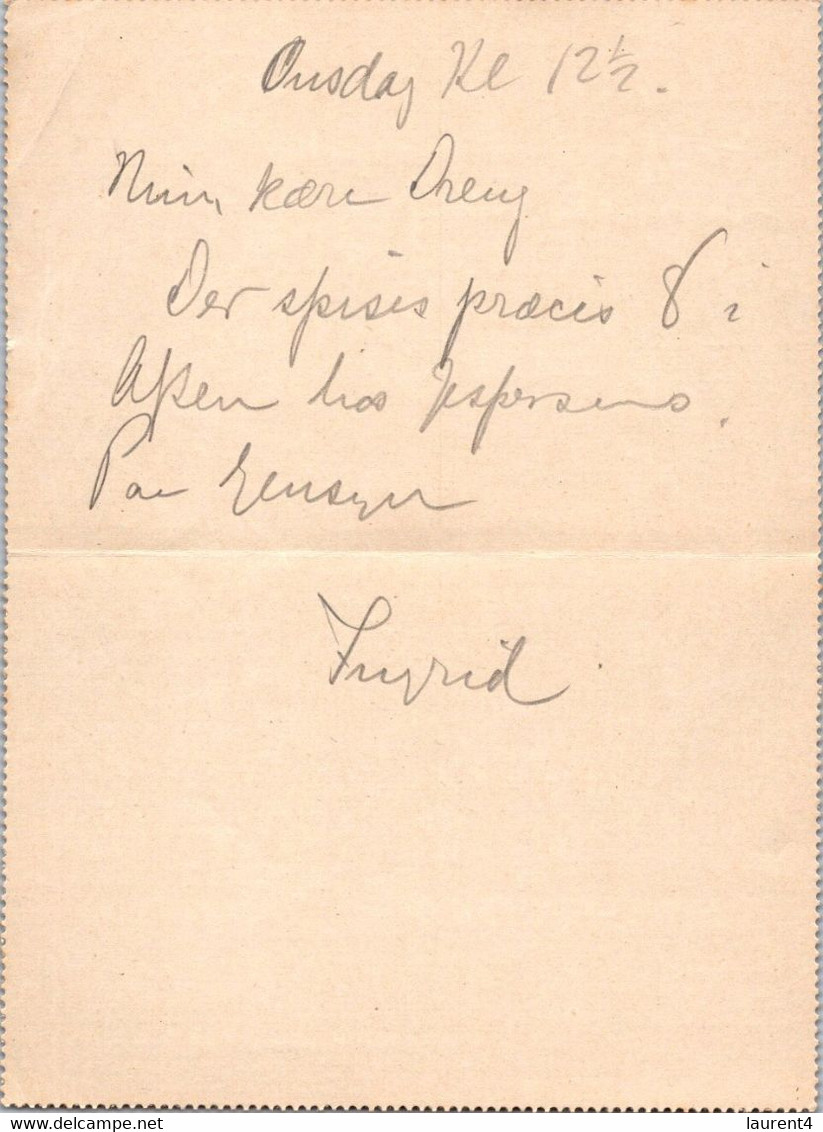 Onsdag Kl 12½.
Min kære Dreng
Der spises præcis 8 i
Aften hos Jespersens.
Paa Gensyn
Ingrid
laurent4